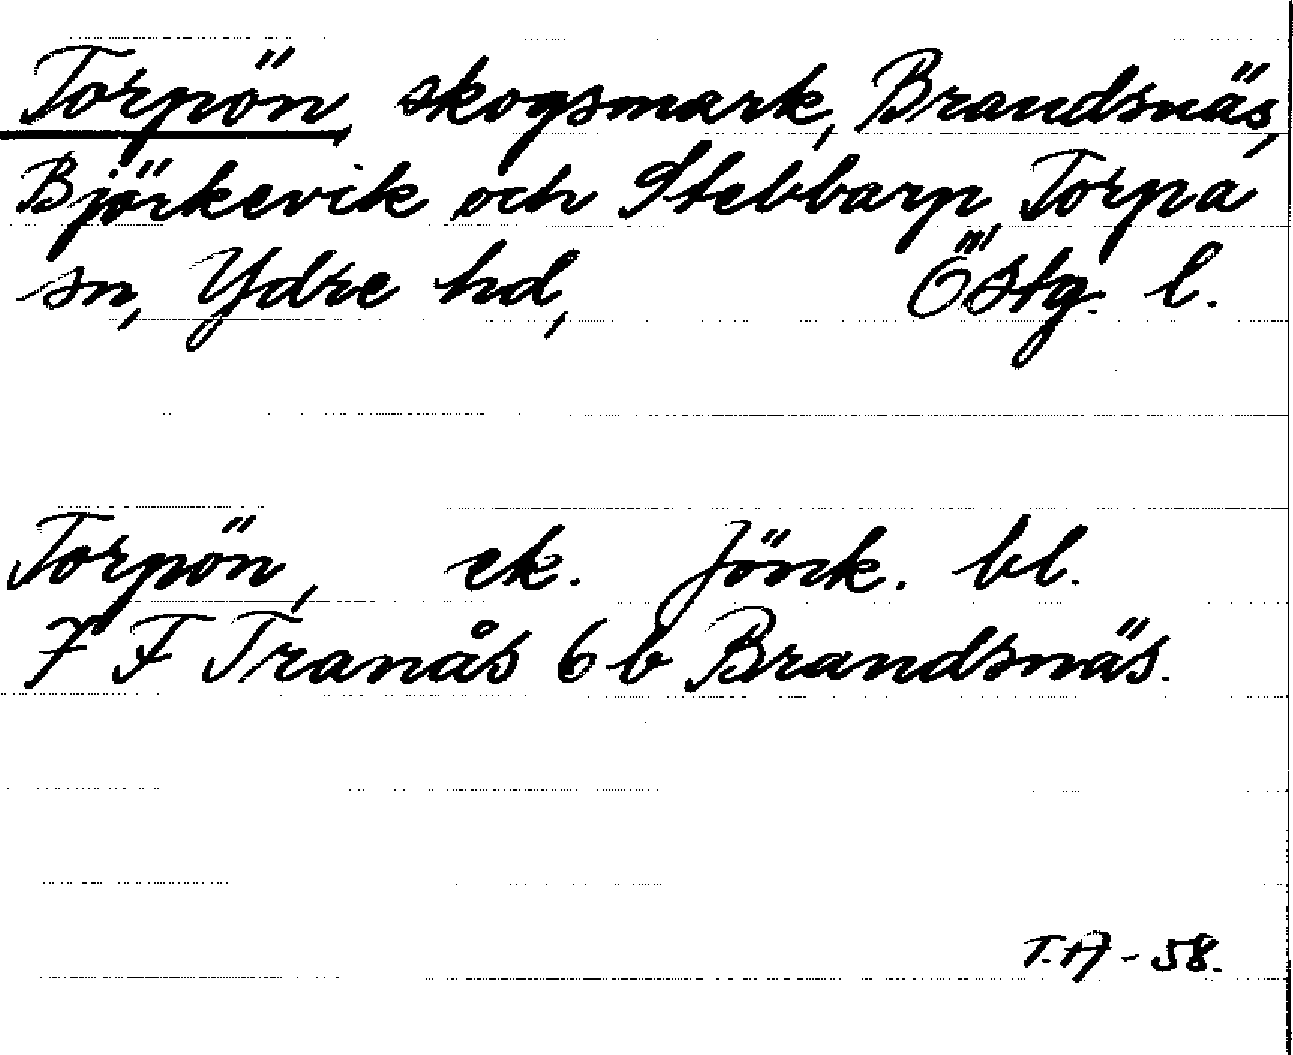 Torpön, skogsmark, Brandsnäs,
Björkevik och Stebbarp, Torpa
sn, Ydre hd, Östg. l.
Torpön, ek. Jönk. bl.
7 F Tranås 6 b Brandsnäs.
T.A - 58.